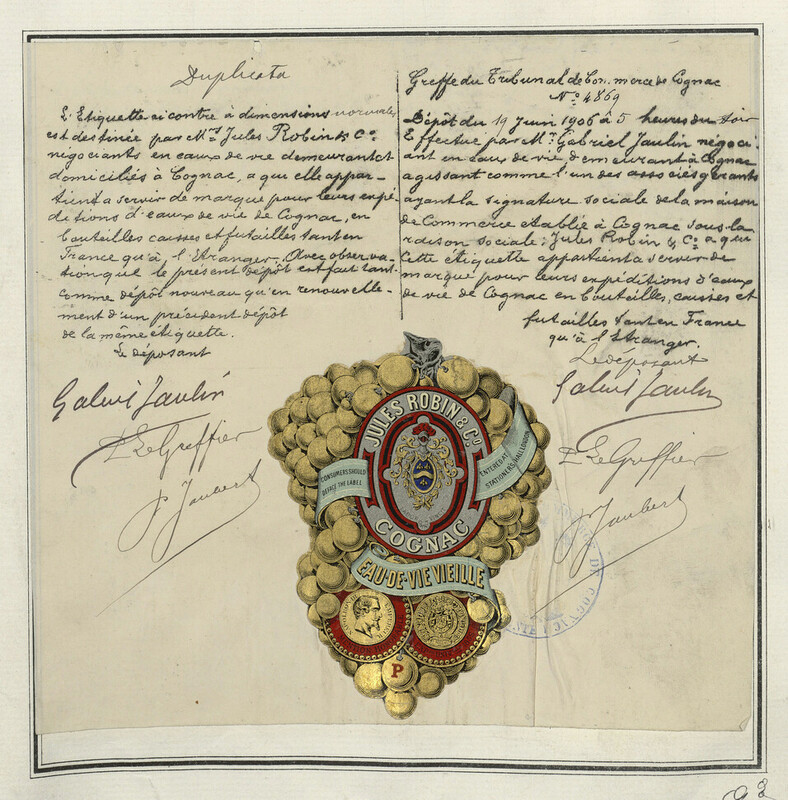 Duplicata
L'Etiquette ci contre à dimensions normales
est destinée par Mrs Jules Robin & Co.
négociants en eaux de vie demeurant et
domiciliés à Cognac, a qui elle appar-
tient a servir de marque pour leurs expé-
ditions d'eaux de vie de Cognac, en
bouteilles caisses et futailles tant en
France qu'à l'Etranger. Avec observa-
tion que le présent dépôt est fait tant
comme dépôt nouveau qu'en renouvelle-
ment d'un précédent dépôt
de la même étiquette.
Le déposant
Gabriel Jaulin
P. Le Greffier
P. Jaubert
Greffe du Tribunal de Commerce de Cognac
No. 4869
Dépôt du 19 Juin 1906 à 5 heures du soir
Effectué par Mr. Gabriel Jaulin négoci-
ant en eaux de vie demeurant à Cognac
agissant comme l'un des associés gérants
ayant la signature sociale de la maison
de Commerce établie à Cognac sous la
raison sociale: Jules Robin & Co. a qui
cette étiquette appartient a servir de
marque pour leurs expéditions d'eaux
de vie de Cognac en bouteilles, caisses et
futailles tant en France
qu'à l'Etranger.
Le déposant
Gabriel Jaulin
P. Le Greffier
P. Jaubert
JULES ROBIN & Co.
CONSUMERS SHOULD
DEFACE THE LABEL
ENTERED AT
STATIONERS HALL LONDON
COGNAC
EAU-DE-VIE VIEILLE
P
DE COGNAC
93